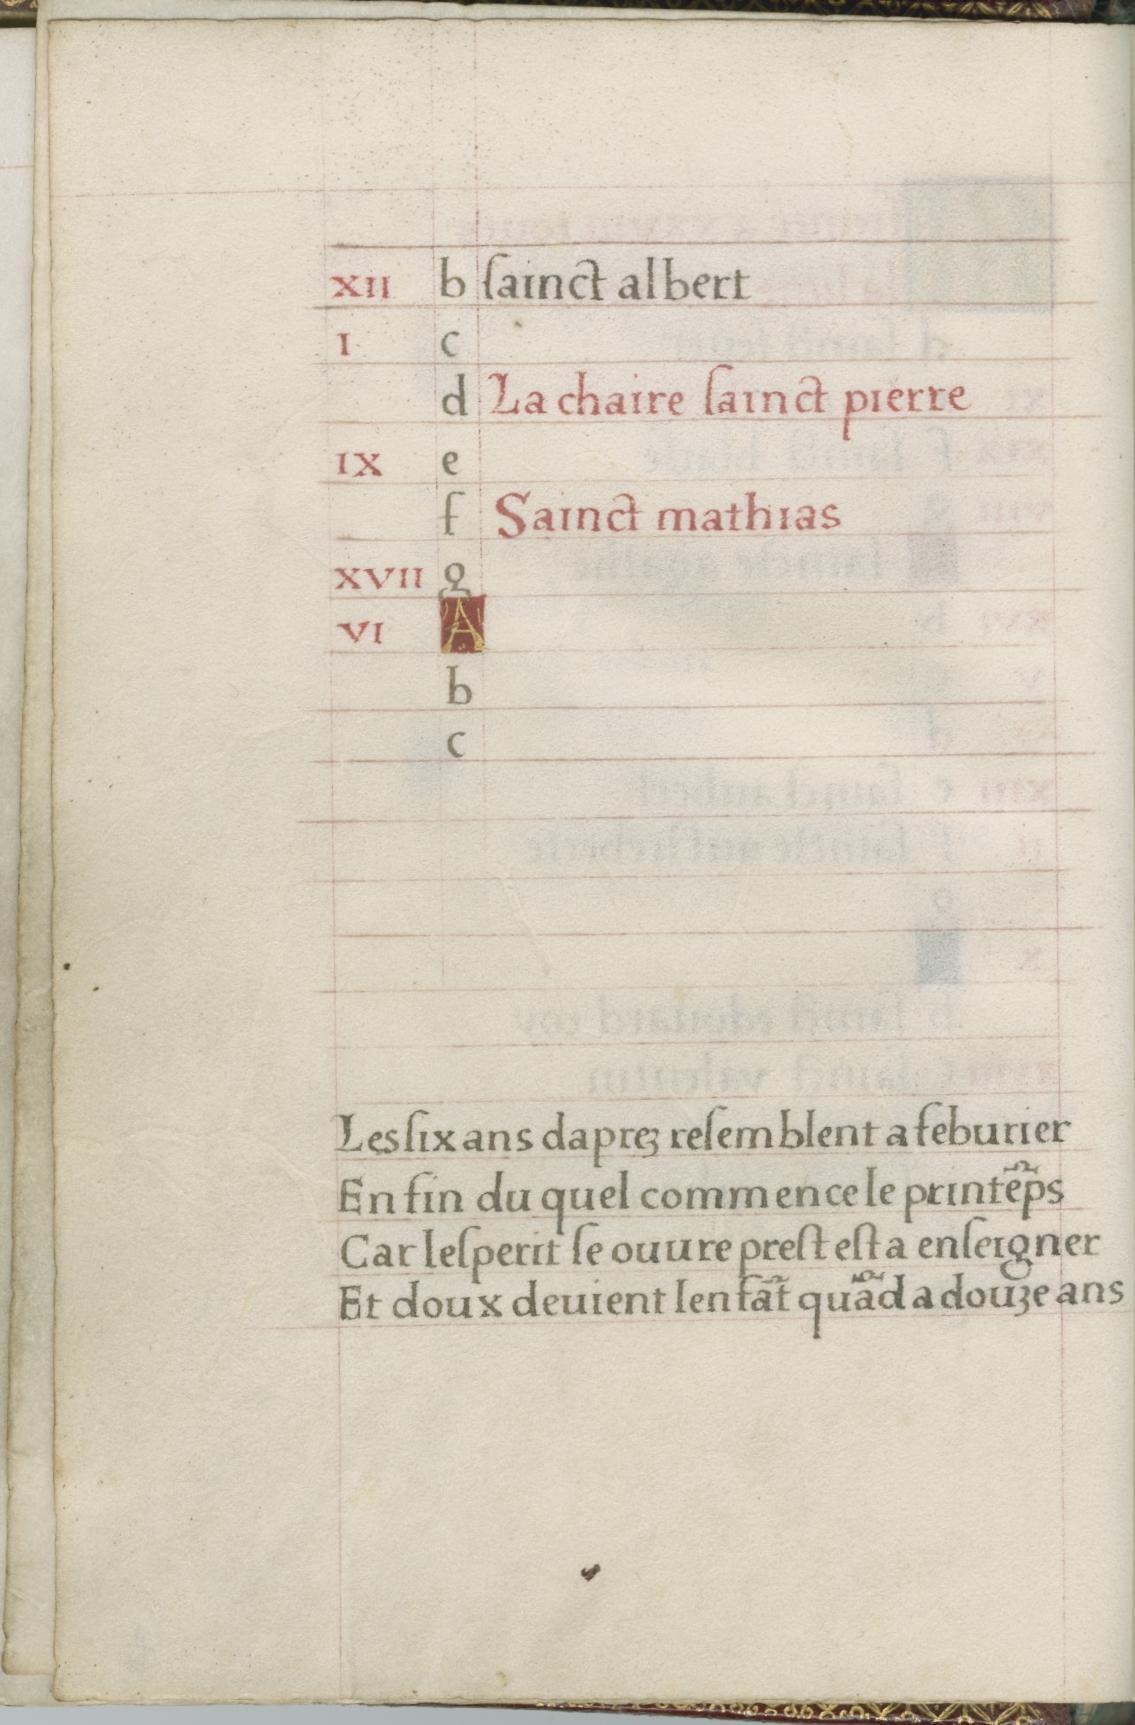 XII b ſainct albert
I c
d La chaire ſainct pierre
IX e
f Sainct mathias
XVII g
VI A
b
c
Les ſix ans daprez reſemblent a feburier
En fin du quel commence le printẽps
Car leſperit ſe ouure preſt eſt a enſeigner
Et doux deuient lenfãt quãd a douze ans